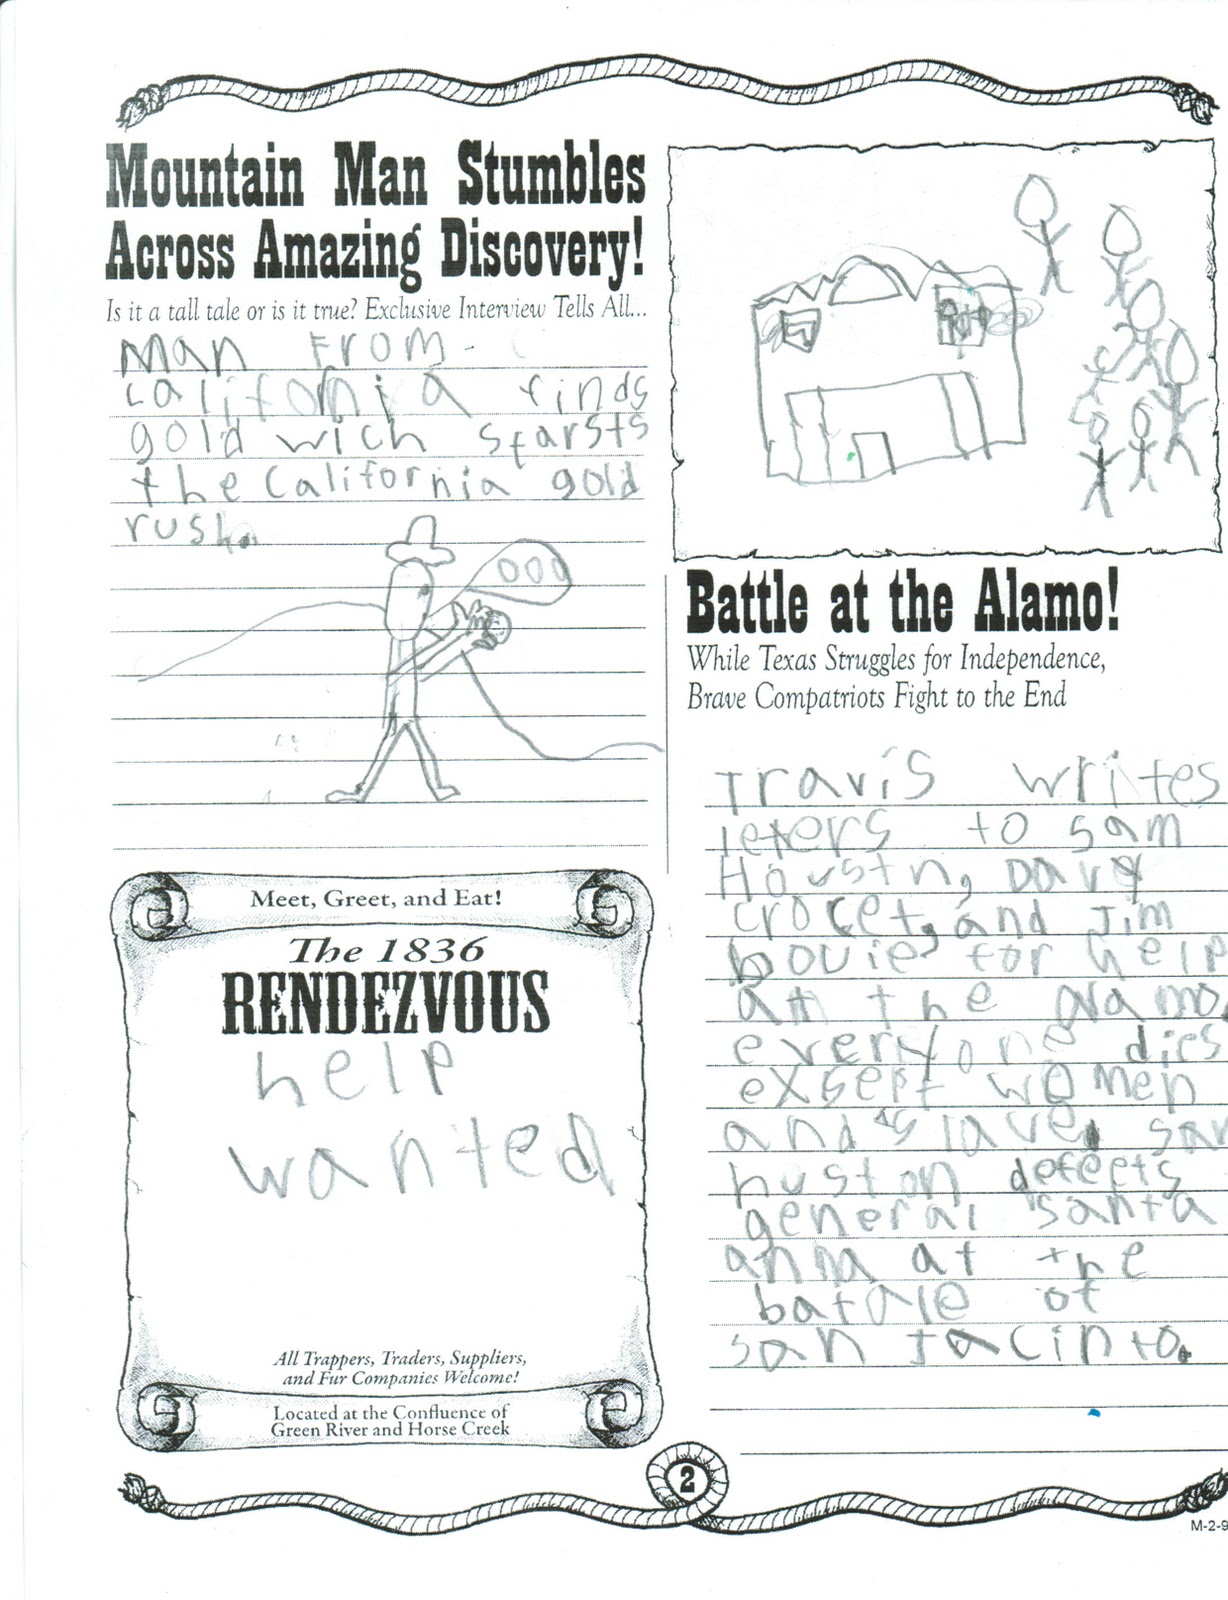 Mountain Man Stumbles
Across Amazing Discovery!
Is it a tall tale or is it true? Exclusive Interview Tells All...
Man From
california finds
gold wich starsts
the California gold
rush.
Meet, Greet, and Eat!
The 1836
RENDEZVOUS
help
wanted
All Trappers, Traders, Suppliers,
and Fur Companies Welcome!
Located at the Confluence of
Green River and Horse Creek
Battle at the Alamo!
While Texas Struggles for Independence,
Brave Compatriots Fight to the End
Travis writes
leters to sam
Houstn, Davy
crocet, and Jim
bouie, for help
at the alamo.
everyone dies
exsept women
and slave. sam
huston defeets
general santa
anna at the
batale of
san Jacinto.
2
M-2-9